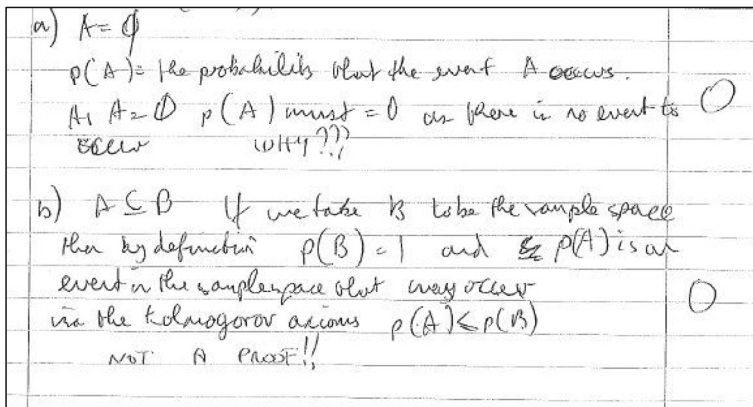 a) A = ∅
p(A) = the probability that the event A occurs.
As A = ∅ p(A) must = 0 as there is no event to 0
occur WHY???
b) A ⊆ B If we take B to be the sample space
then by definition p(B) = 1 and p(A) is an
event in the sample space that may occur 0
via the Kolmogorov axioms p(A) ≤ p(B)
NOT A PROOF!!